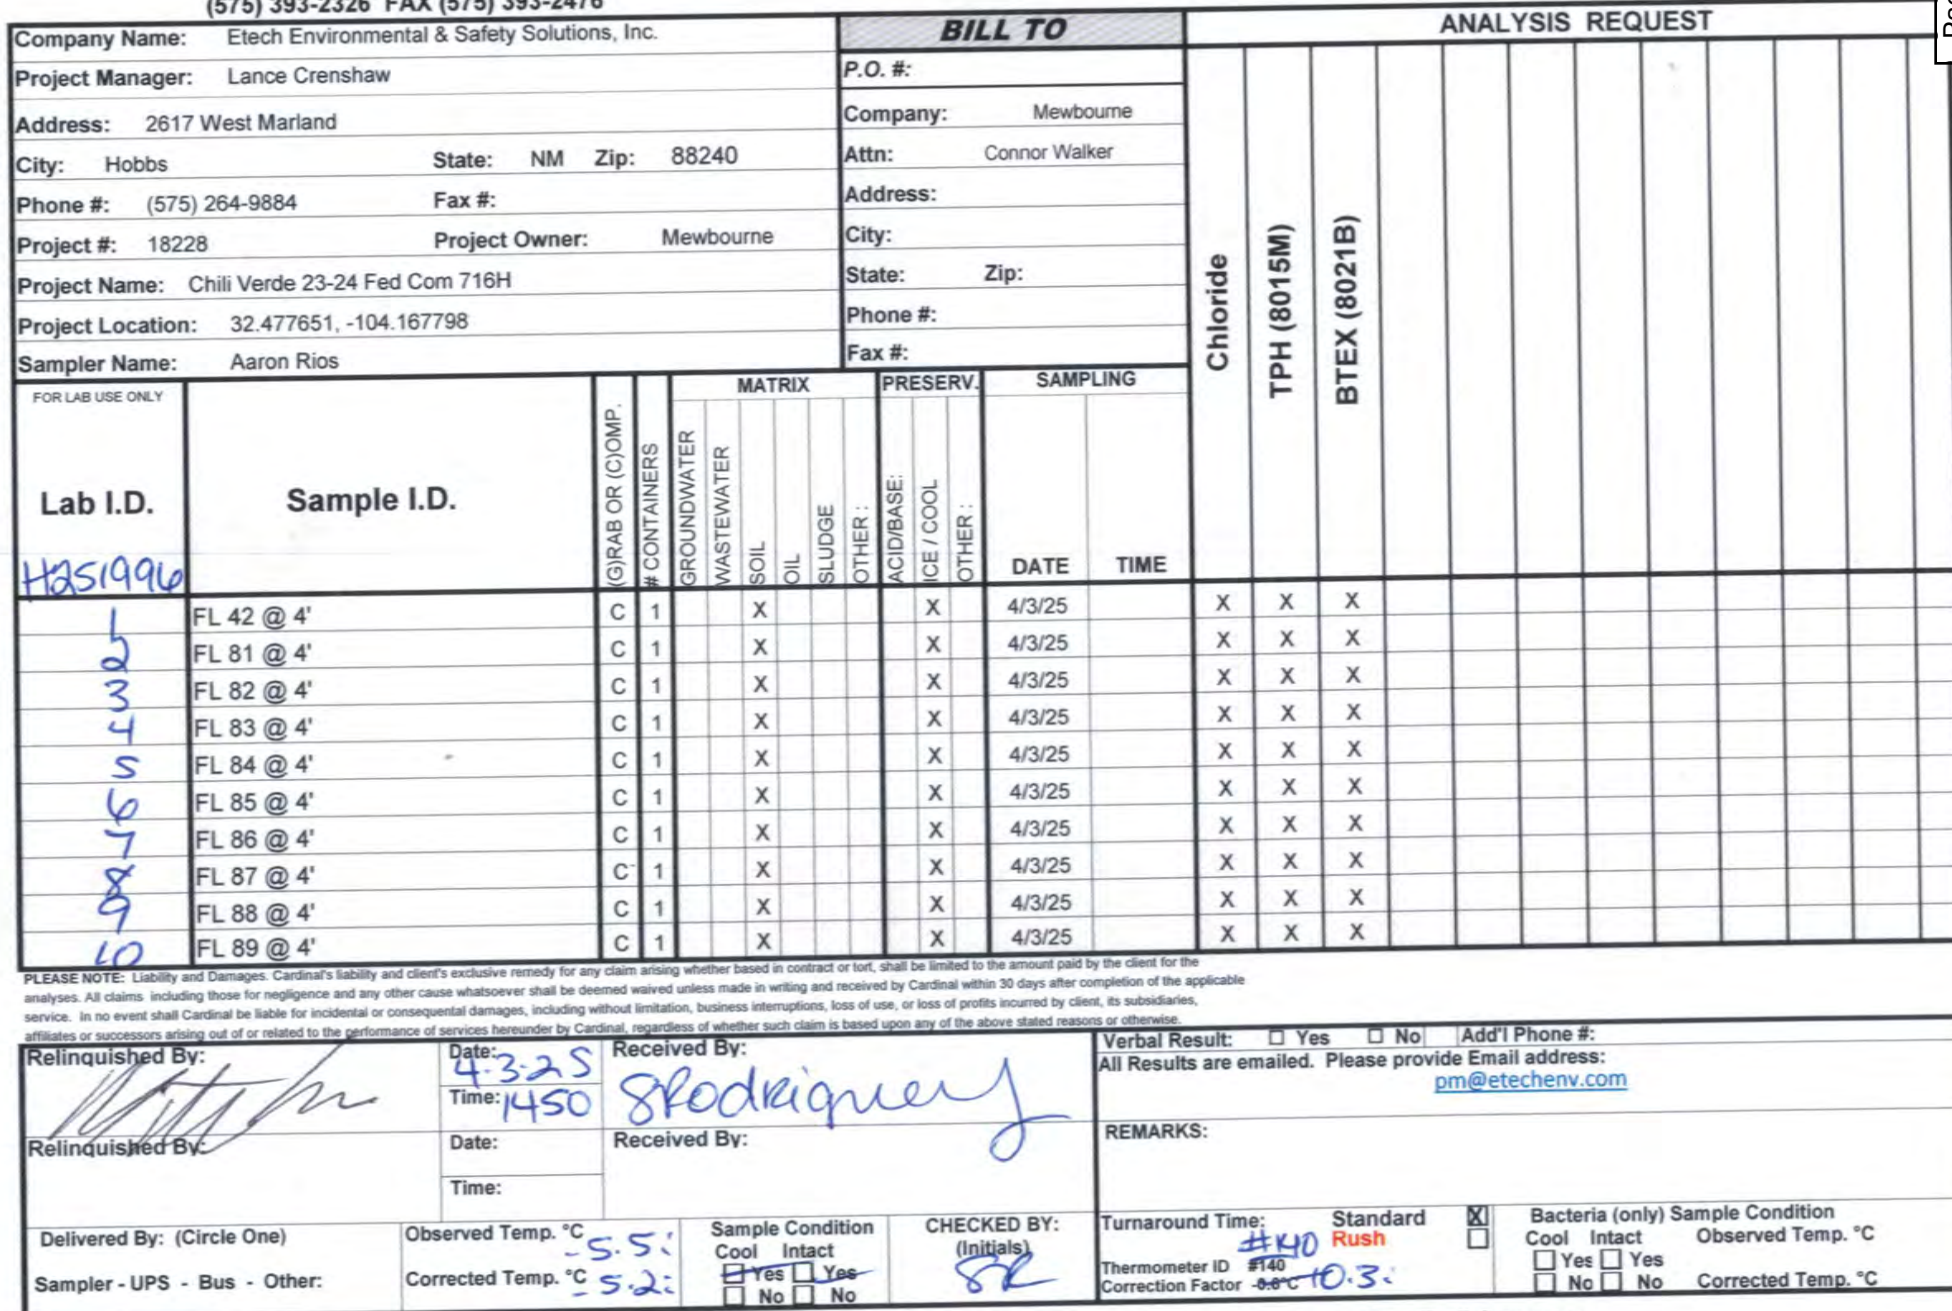 (575) 393-2326 FAX (575) 393-2476
Company Name: Etech Environmental & Safety Solutions, Inc.
BILL TO
ANALYSIS REQUEST
Project Manager: Lance Crenshaw
P.O. #:
Address: 2617 West Marland
Company: Mewbourne
City: Hobbs State: NM Zip: 88240
Attn: Connor Walker
Phone #: (575) 264-9884 Fax #:
Address:
Project #: 18228 Project Owner: Mewbourne
City:
Project Name: Chili Verde 23-24 Fed Com 716H
State: Zip:
Project Location: 32.477651, -104.167798
Phone #:
Sampler Name: Aaron Rios
Fax #:
Chloride
TPH (8015M)
BTEX (8021B)
FOR LAB USE ONLY
MATRIX PRESERV. SAMPLING
Lab I.D. Sample I.D. (G)RAB OR (C)OMP. # CONTAINERS GROUNDWATER WASTEWATER SOIL OIL SLUDGE OTHER : ACID/BASE: ICE / COOL OTHER : DATE TIME
H251996
1 FL 42 @ 4' C 1 X X 4/3/25 X X X
2 FL 81 @ 4' C 1 X X 4/3/25 X X X
3 FL 82 @ 4' C 1 X X 4/3/25 X X X
4 FL 83 @ 4' C 1 X X 4/3/25 X X X
5 FL 84 @ 4' C 1 X X 4/3/25 X X X
6 FL 85 @ 4' C 1 X X 4/3/25 X X X
7 FL 86 @ 4' C 1 X X 4/3/25 X X X
8 FL 87 @ 4' C 1 X X 4/3/25 X X X
9 FL 88 @ 4' C 1 X X 4/3/25 X X X
10 FL 89 @ 4' C 1 X X 4/3/25 X X X
PLEASE NOTE: Liability and Damages. Cardinal's liability and client's exclusive remedy for any claim arising whether based in contract or tort, shall be limited to the amount paid by the client for the
analyses. All claims including those for negligence and any other cause whatsoever shall be deemed waived unless made in writing and received by Cardinal within 30 days after completion of the applicable
service. In no event shall Cardinal be liable for incidental or consequental damages, including without limitation, business interruptions, loss of use, or loss of profits incurred by client, its subsidiaries,
affiliates or successors arising out of or related to the performance of services hereunder by Cardinal, regardless of whether such claim is based upon any of the above stated reasons or otherwise.
Relinquished By: Date: 4-3-25 Received By: SRodriguez
Time: 1450
Verbal Result: ☐ Yes ☐ No Add'l Phone #:
All Results are emailed. Please provide Email address:
pm@etechenv.com
Relinquished By: Date: Received By:
Time:
REMARKS:
Delivered By: (Circle One)
Sampler - UPS - Bus - Other:
Observed Temp. °C -5.5
Corrected Temp. °C -5.2
Sample Condition
Cool Intact
Yes Yes
No No
CHECKED BY:
(Initials)
SR
Turnaround Time: Standard X
Rush
#140
Thermometer ID #140
Correction Factor -0.6°C +0.3
Bacteria (only) Sample Condition
Cool Intact Observed Temp. °C
Yes Yes
No No Corrected Temp. °C